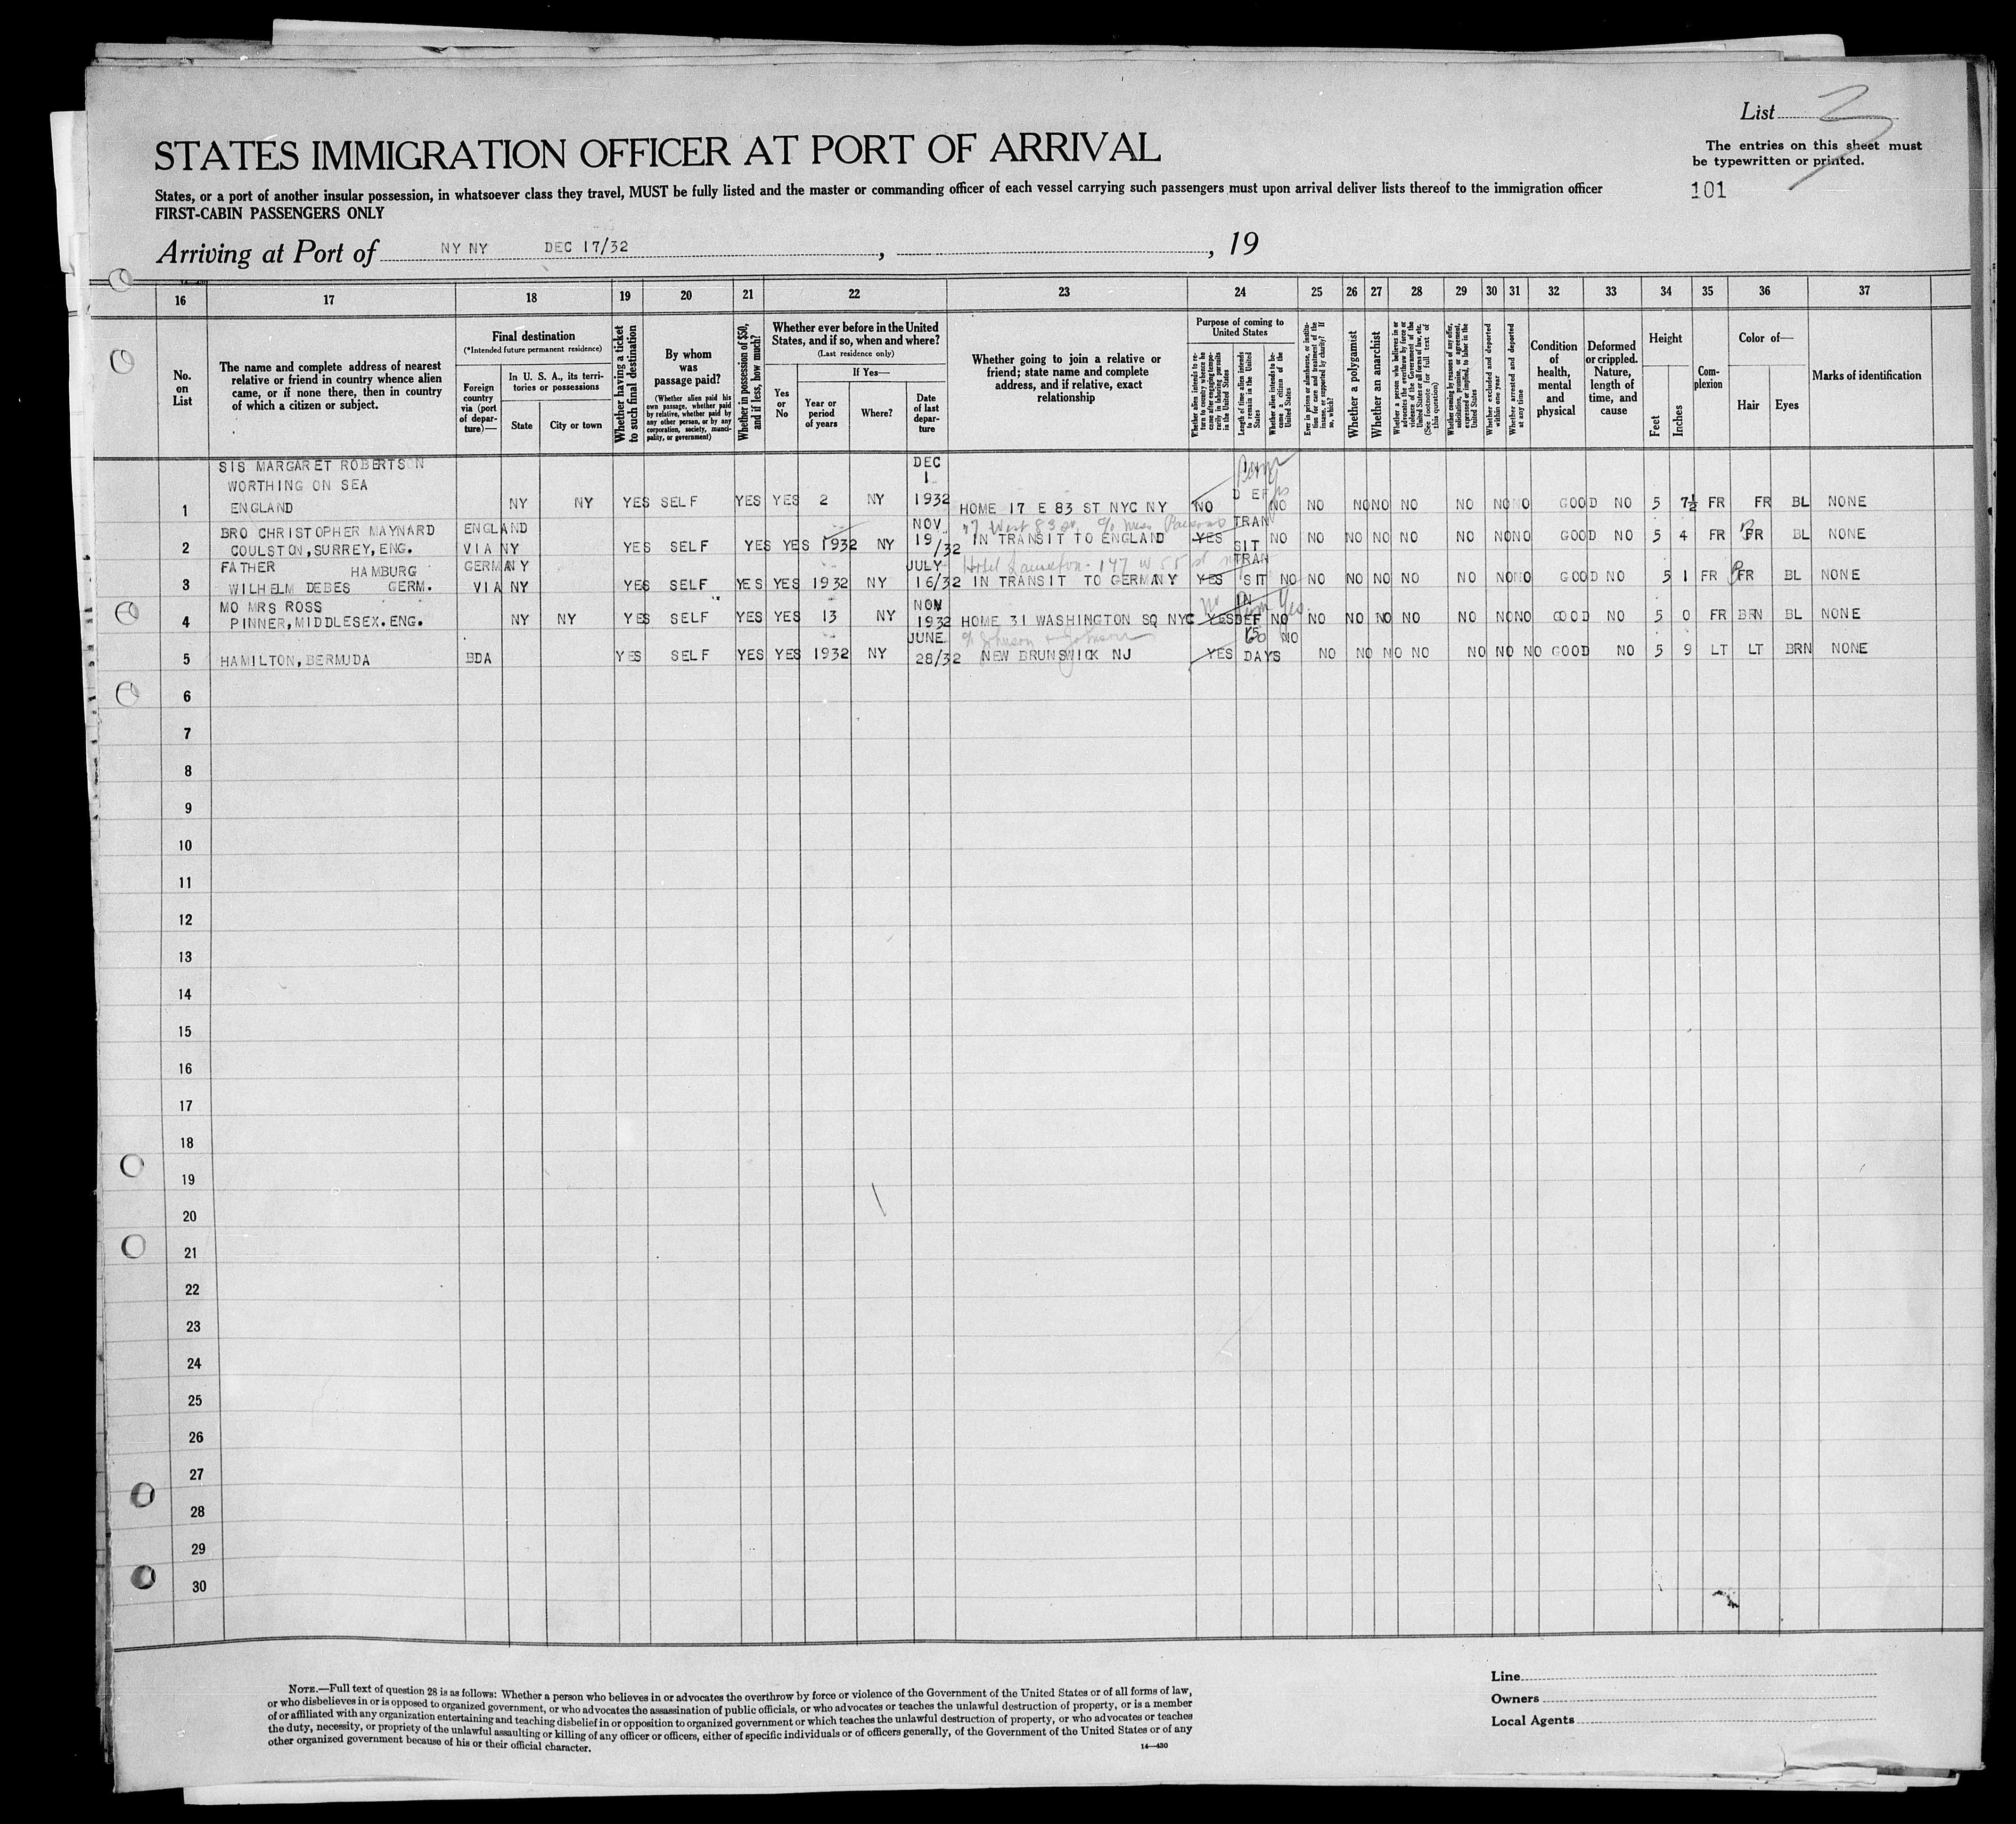 List 3
STATES IMMIGRATION OFFICER AT PORT OF ARRIVAL
The entries on this sheet must
be typewritten or printed.
101
States, or a port of another insular possession, in whatsoever class they travel, MUST be fully listed and the master or commanding officer of each vessel carrying such passengers must upon arrival deliver lists thereof to the immigration officer
FIRST-CABIN PASSENGERS ONLY
Arriving at Port of NY NY DEC 17/32 , , 19
16 17 18 19 20 21 22 23 24 25 26 27 28 29 30 31 32 33 34 35 36 37
No.
on
List
The name and complete address of nearest
relative or friend in country whence alien
came, or if none there, then in country
of which a citizen or subject.
Final destination
(*Intended future permanent residence)
Foreign
country
via (port
of depar-
ture)—
In U. S. A., its terri-
tories or possessions
State
City or town
Whether having a ticket
to such final destination
By whom
was
passage paid?
(Whether alien paid his
own passage, whether paid
by relative, whether paid by
any other person, or by any
corporation, society, munici-
pality, or government)
Whether in possession of $50,
and if less, how much?
Whether ever before in the United
States, and if so, when and where?
(Last residence only)
Yes
or
No
If Yes—
Year or
period
of years
Where?
Date
of last
depar-
ture
Whether going to join a relative or
friend; state name and complete
address, and if relative, exact
relationship
Purpose of coming to
United States
Whether alien intends to re-
turn to country whence he
came after engaging tempo-
rarily in laboring pursuits
in the United States
Length of time alien intends
to remain in the United
States
Whether alien intends to be-
come a citizen of the
United States
Ever in prison or almshouse, or institu-
tion for care and treatment of the
insane, or supported by charity? If
so, which?
Whether a polygamist
Whether an anarchist
Whether a person who believes in or
advocates the overthrow by force or
violence of the Government of the
United States or all forms of law, etc.
(See footnote for full text of
this question)
Whether coming by reasons of any offer,
solicitation, promise, or agreement,
expressed or implied, to labor in the
United States
Whether excluded and deported
within one year
Whether arrested and deported
at any time
Condition
of
health,
mental
and
physical
Deformed
or crippled.
Nature,
length of
time, and
cause
Height
Feet
Inches
Com-
plexion
Color of—
Hair
Eyes
Marks of identification
SIS MARGARET ROBERTSON DEC
WORTHING ON SEA 1
1 ENGLAND NY NY YES SELF YES YES 2 NY 1932 HOME 17 E 83 ST NYC NY NO NO NO NO NO NO NO NO NO GOOD NO 5 7½ FR FR BL NONE
BRO CHRISTOPHER MAYNARD ENGLAND NOV TRAN
2 COULSTON,SURREY,ENG. VIA NY YES SELF YES YES 1932 NY 19/32 IN TRANSIT TO ENGLAND YES SIT NO NO NO NO NO NO NO NO GOOD NO 5 4 FR FR BL NONE
FATHER HAMBURG GERMANY JULY TRAN
3 WILHELM DEBES GERM. VIA NY YES SELF YES YES 1932 NY 16/32 IN TRANSIT TO GERMANY YES SIT NO NO NO NO NO NO NO NO GOOD NO 5 1 FR FR BL NONE
MO MRS ROSS NOV No IN Perm Yes.
4 PINNER,MIDDLESEX.ENG. NY NY YES SELF YES YES 13 NY 1932 HOME 31 WASHINGTON SQ NYC YES DEF NO NO NO NO NO NO NO NO GOOD NO 5 0 FR BRN BL NONE
JUNE c/o Johnson & Johnson 60 NO
5 HAMILTON,BERMUDA BDA YES SELF YES YES 1932 NY 28/32 NEW BRUNSWICK NJ YES DAYS NO NO NO NO NO NO NO GOOD NO 5 9 LT LT BRN NONE
6
7
8
9
10
11
12
13
14
15
16
17
18
19
20
21
22
23
24
25
26
27
28
29
30
NOTE.—Full text of question 28 is as follows: Whether a person who believes in or advocates the overthrow by force or violence of the Government of the United States or of all forms of law,
or who disbelieves in or is opposed to organized government, or who advocates the assassination of public officials, or who advocates or teaches the unlawful destruction of property, or is a member
of or affiliated with any organization entertaining and teaching disbelief in or opposition to organized government or which teaches the unlawful destruction of property, or who advocates or teaches
the duty, necessity, or propriety of the unlawful assaulting or killing of any officer or officers, either of specific individuals or of officers generally, of the Government of the United States or of any
other organized government because of his or their official character.
14—430
Line
Owners
Local Agents